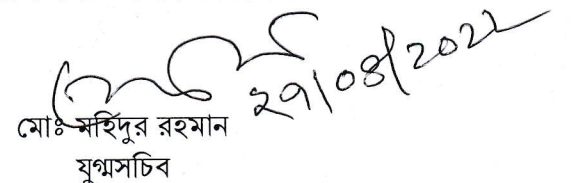 ২৭/০৪/২০২২
মোঃ মহিদুর রহমান
যুগ্মসচিব